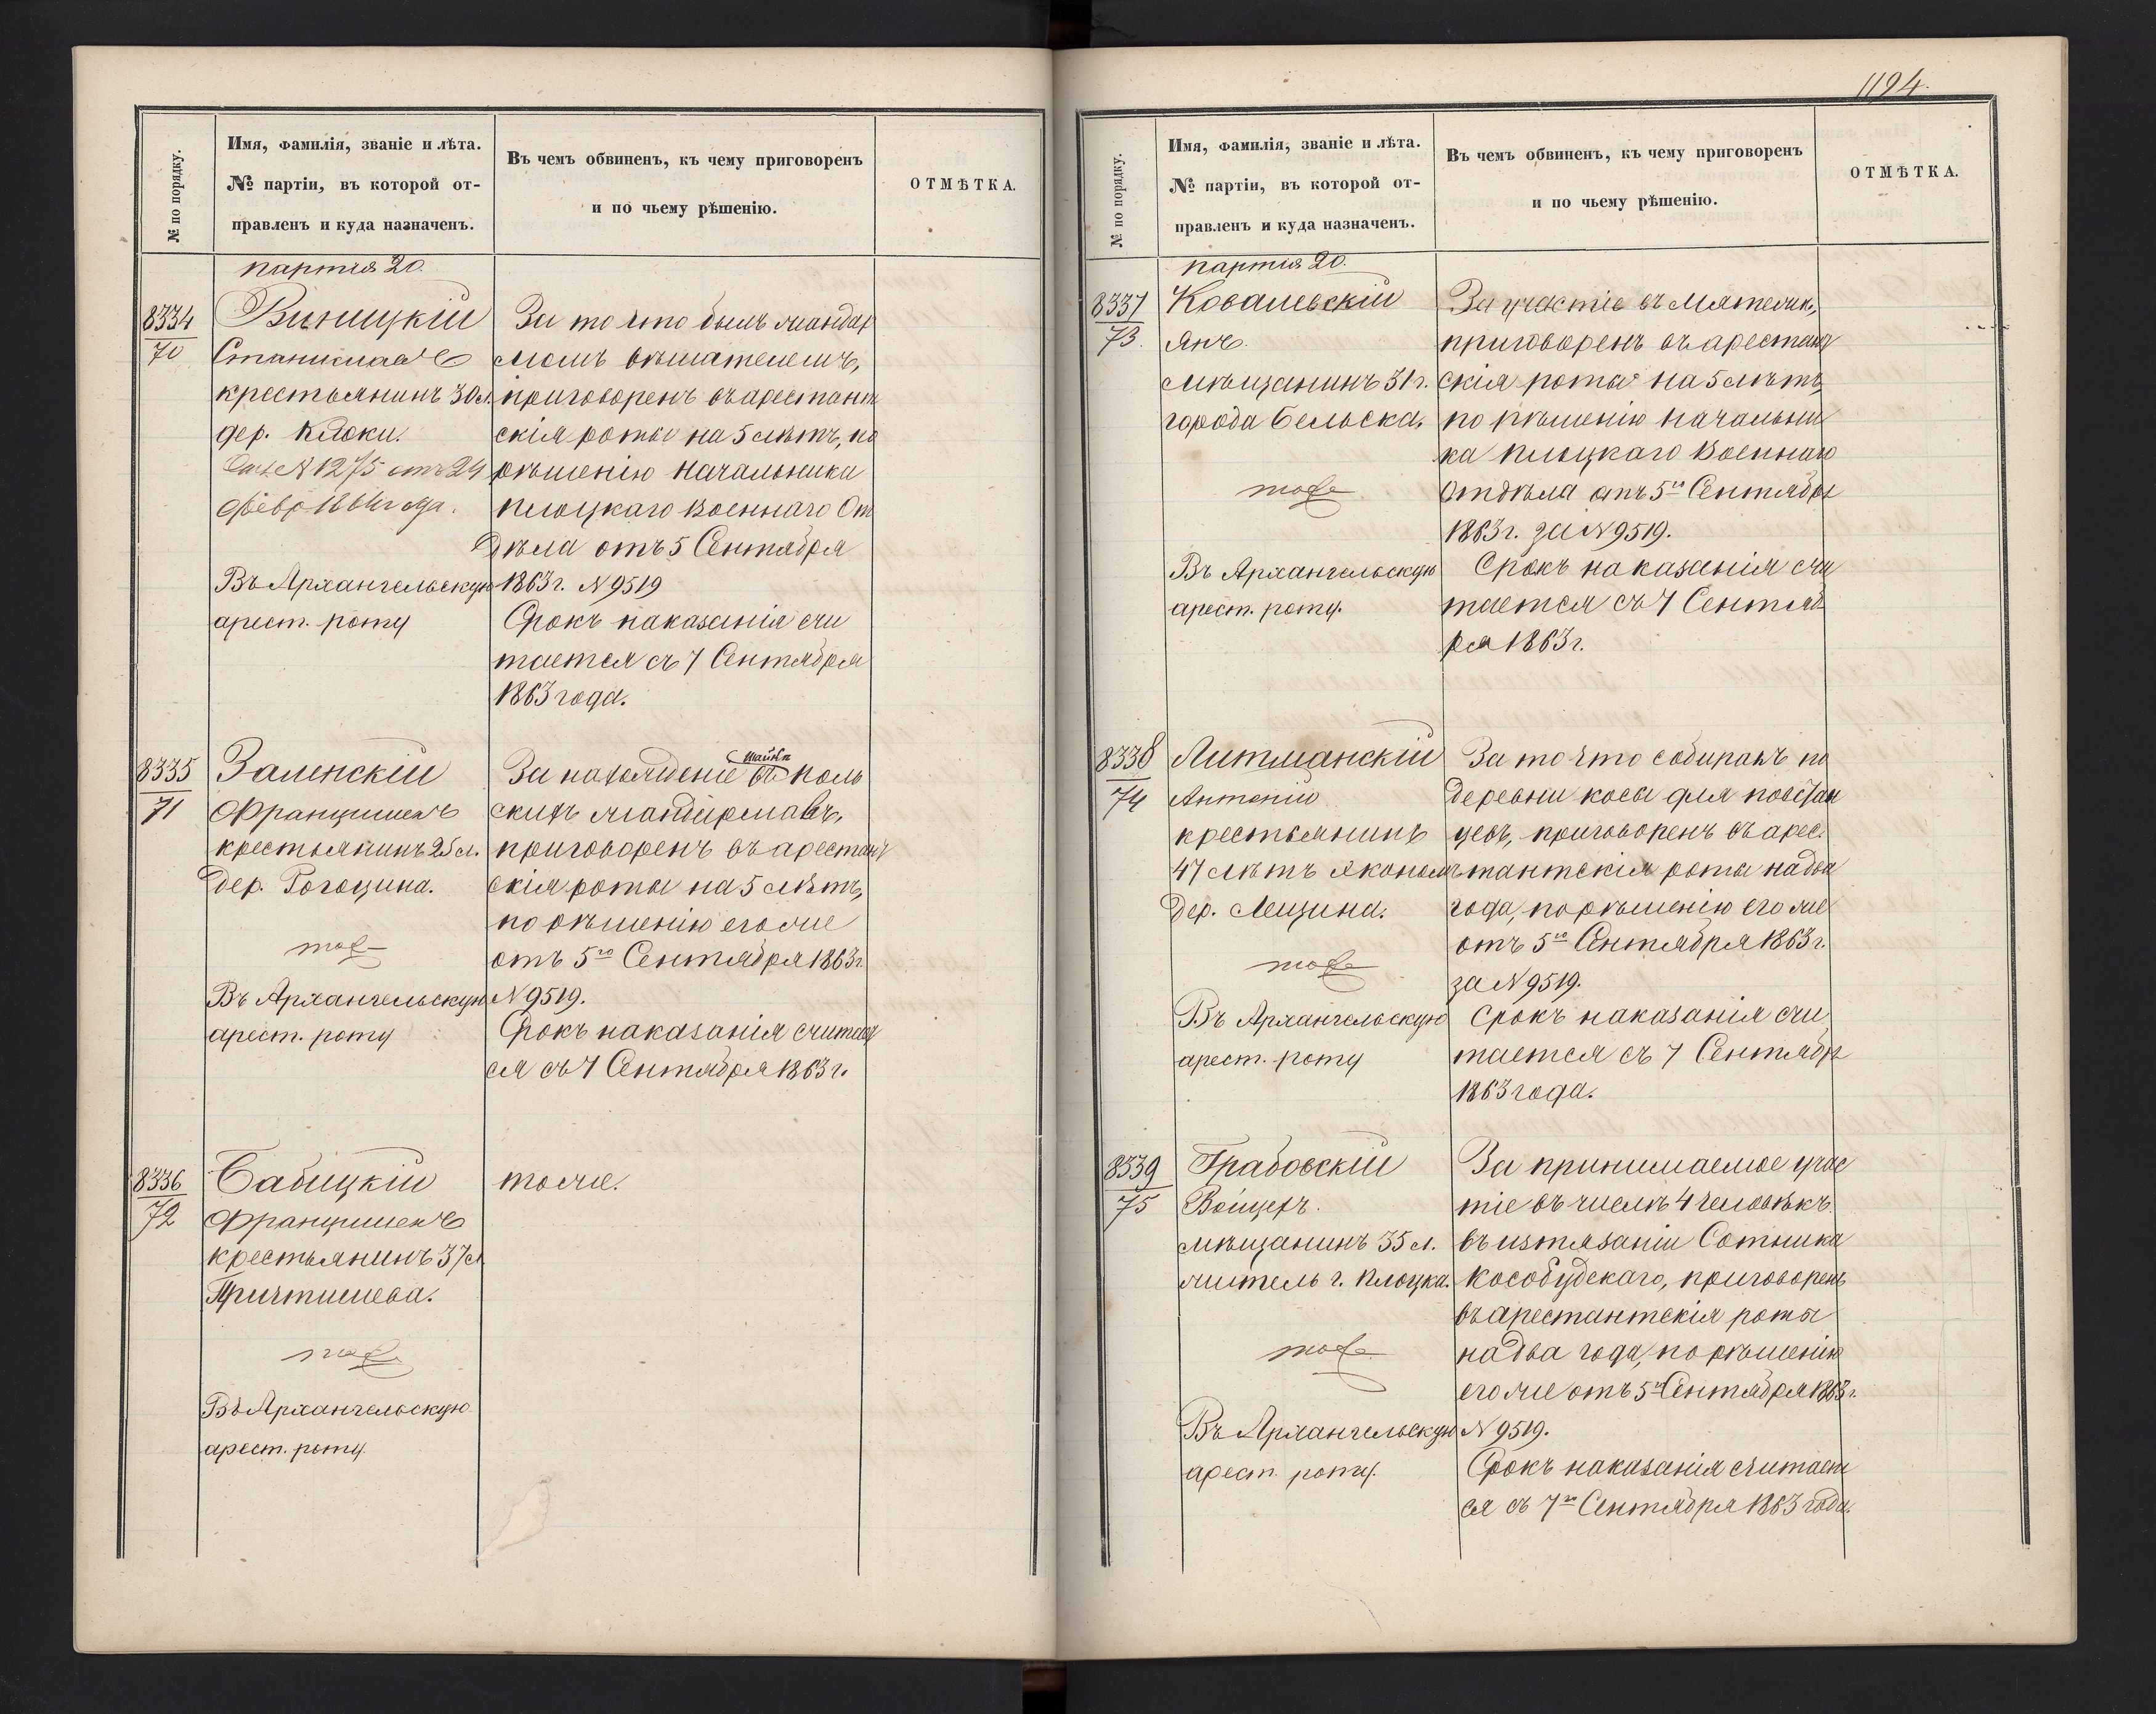 № по порядку.
Имя, фамилія, званіе и лѣта.
№ партіи, въ которой от-
правленъ и куда назначенъ.
Въ чемъ обвиненъ, къ чему приговоренъ
и по чьему рѣшенію.
ОТМѢТКА.
партія 20.
8334
70
Виницкій
Станиславъ
крестьянинъ 30 л.
дер. Клоки.
№ 1275 отъ 24
февр 1864 года.
Въ Архангельскую
арест. роту
За то что былъ жандар
момъ вѣшателемъ,
приговоренъ въ арестант
скія роты на 5 лѣтъ, по
рѣшенію Начальника
Плоцкаго Военнаго От
дѣла отъ 5 Сентября
1863 г. N 9519
Срокъ наказанія счи
тается съ 7 Сентября
1863 года.
8335
71
Заленскій
Францишекъ
крестьянинъ 25 л.
дер. Гогоцина.
тоже
Въ Архангельскую
арест. роту
За нахожденіе въ поль
тайн
скихъ жандармахъ,
приговоренъ въ арестант
скія роты на 5 лѣтъ,
по рѣшенію его же
отъ 5го Сентября 1863 г.
N 9519.
Срокъ наказанія считает
ся съ 7 Сентября 1863 г.
8336
72
Бабицкій
Францишекъ
крестьянинъ 37 л
тоже
Въ Архангельскую
арест. роту.
тоже.
1194.
№ по порядку.
Имя, фамилія, званіе и лѣта.
№ партіи, въ которой от-
правленъ и куда назначенъ.
Въ чемъ обвиненъ, къ чему приговоренъ
и по чьему рѣшенію.
ОТМѢТКА.
партія 20.
8337
73.
Ковалевскій
Янъ.
мѣщанинъ 31 г.
города Бельска.
тоже
Въ Архангельскую
арест. роту.
За участіе въ мятежѣ,
приговоренъ въ арестант
скія роты на 5 лѣтъ,
по рѣшенію Начальни
ка Плоцкаго Военнаго
Отдѣла отъ 5го Сентября
1863 г. за N 9519.
Срокъ наказанія счи
тается съ 7 Сентяб
ря 1863 г.
8338
74
Литманскій
Антоній
крестьянинъ
47 лѣтъ экономъ
дер. Лещина.
тоже
Въ Архангельскую
арест. роту
За то что собиралъ по
деревни косы для повстан
цевъ, приговоренъ въ арес.
тантскія роты на два
года, по рѣшенію его же
отъ 5го Сентября 1863 г.
за N 9519.
Срокъ наказанія счи
тается съ 7 Сентября
1863 года.
8339
75
Грабовскій
Войцехъ.
мѣщанинъ 35 л.
житель г. Плоцка.
тоже
Въ Архангельскую
арест. роту.
За принимаемое учас
тіе въ числѣ 4 человѣкъ
въ изтязаніи Сотника
Кособудскаго, приговоренъ
въ арестантскія роты
на два года, по рѣшенію
его же отъ 5го Сентября 1863 г.
N 9519.
Срокъ наказанія считает
ся съ 7го Сентября 1863 года.